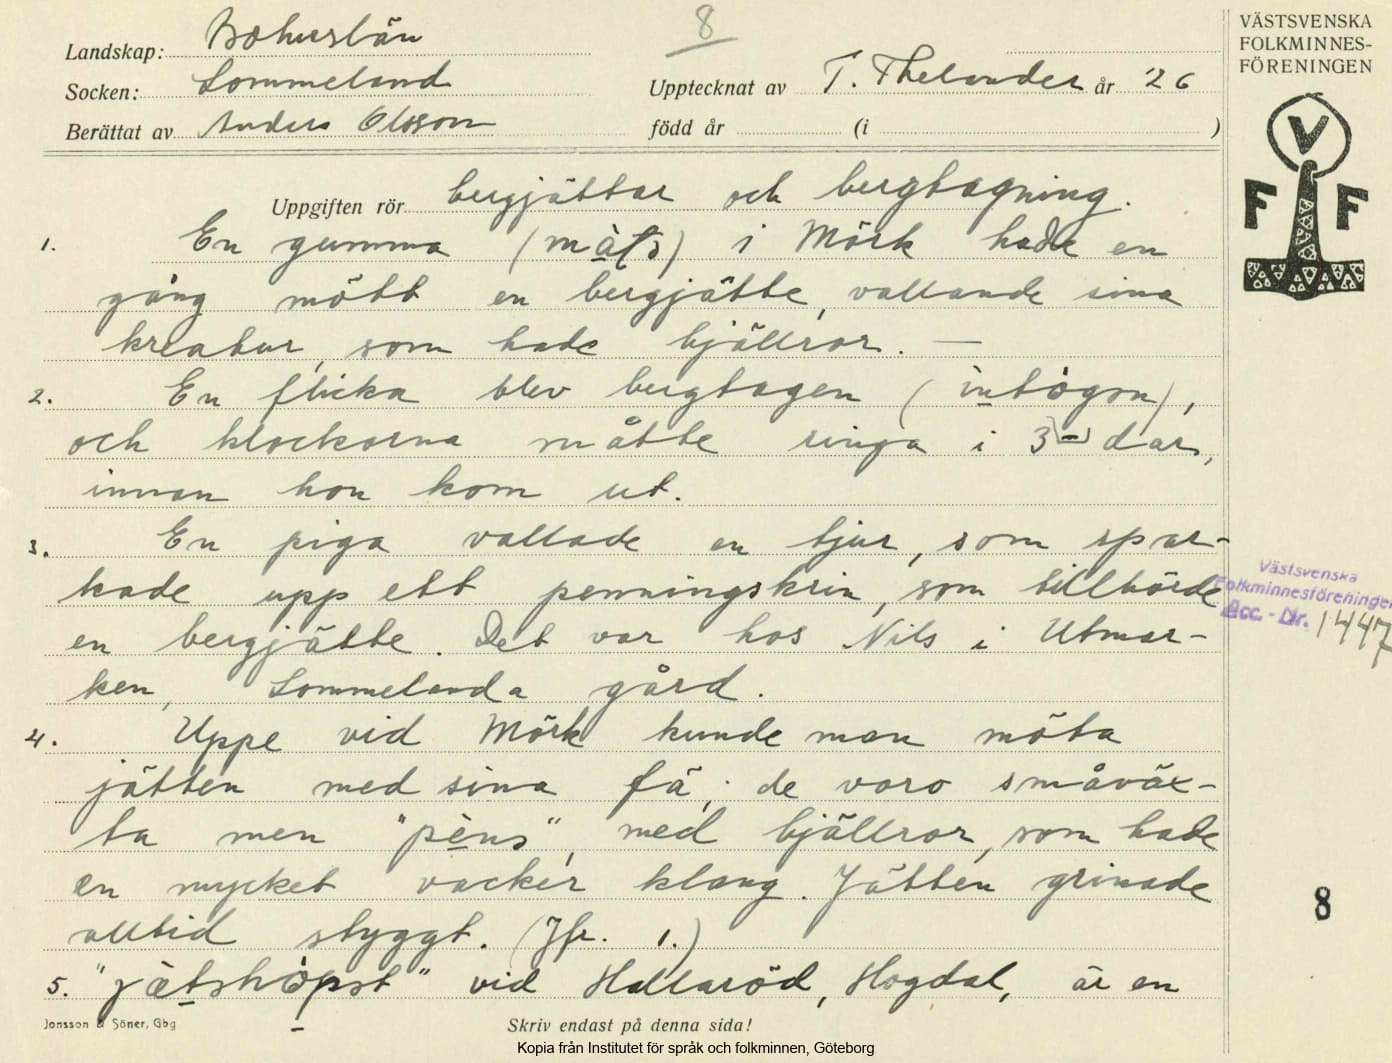 8
VÄSTSVENSKA
FOLKMINNES-
FÖRENINGEN
Landskap: Bohuslän
Socken: Lommeland
Upptecknat av T. Thelander år '26
Berättat av Anders Olsson
född år (i )
V
F F
Uppgiften rör bergjättar och bergtagning.
1. En gumma ( ) i Mörk hade en
gång mött en bergjätte, vallande sina
kreatur, som hade bjällror. —
2. En flicka blev bergtagen (intògon),
och klockorna måtte ringa i 3 dar,
innan hon kom ut.
3. En piga vallade en tjur, som spar-
kade upp ett penningskrin, som tillhörde
en bergjätte. Det var hos Nils i Utmar-
ken, Lommelanda gård.
Västsvenska
Folkminnesföreningen
Acc. - Nr. 1447
4. Uppe vid Mörk kunde man möta
jätten med sina fä; de voro småväx-
ta men "pèns", med bjällror, som hade
en mycket vacker klang. Jätten grinade
alltid styggt. (Jfr. 1.)
8
5. vid Hallaröd, Hogdal, är en
Jonsson & Söner, Gbg
Skriv endast på denna sida!
Kopia från Institutet för språk och folkminnen, Göteborg